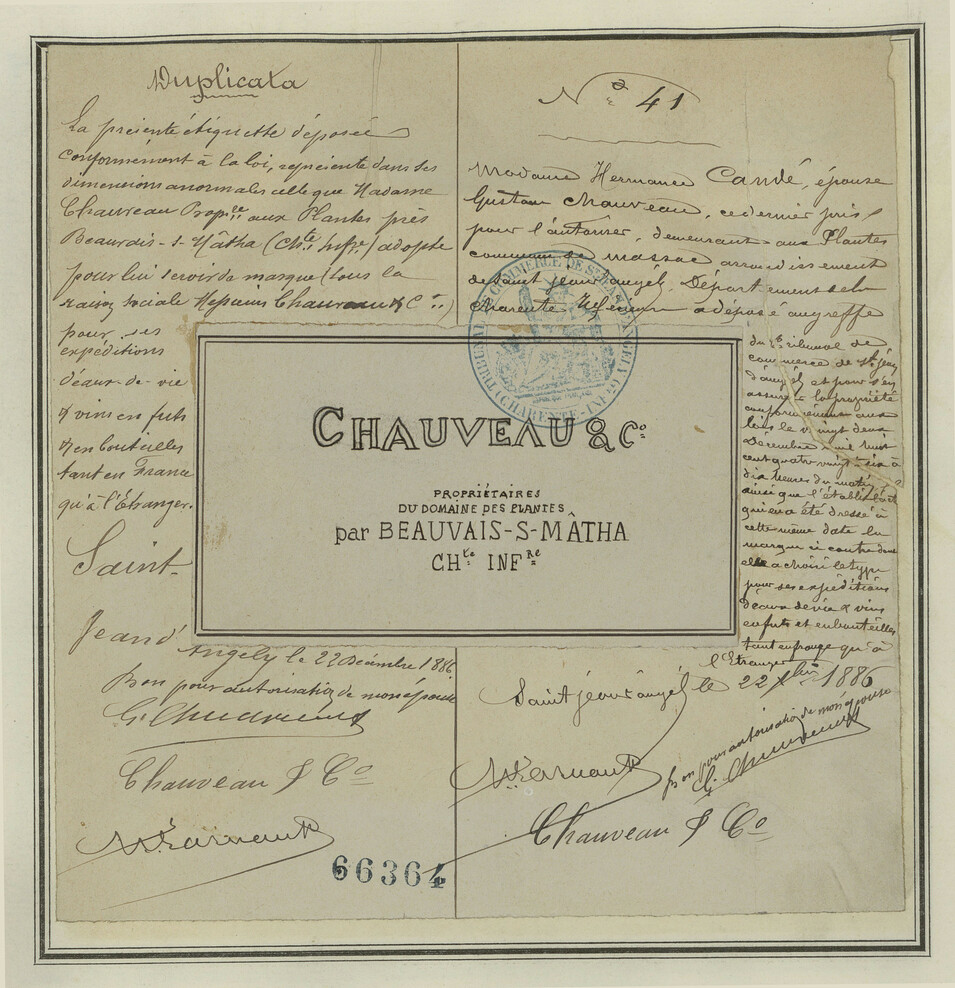 Duplicata
La présente étiquette déposée
conformément à la loi, représente dans ses
dimensions anormales celle que Madame
Chauveau Propre aux Plantes près
Beauvais-s-Mâtha (Chte Infre) adopte
pour lui servir de marque (sous la
raison sociale Chauveau & Cie)
pour ses
expéditions
d'eaux-de-vie
& vins en futs
& en bouteilles
tant en France
qu'à l'Étranger.
Saint-
Jean d'
Angely le 22 Décembre 1886
Bon pour autorisation de mon épouse
G. Chauveau
Chauveau & Co
66364
No 41
Madame Hermance Candé, épouse
Gustave Chauveau, ce dernier pris
pour l'autoriser, demeurant aux Plantes
commune de Massac arrondissement
de Saint Jean d'angély. Département de la
Charente Inférieure a déposé au greffe
du tribunal de
commerce de St Jean
d'angély et pour s'en
assurer la propriété
conformément aux
lois le vingt deux
Décembre mil huit
cent quatre vingt six à
dix heures du matin
ainsi que l'établit
qui en a été dressé à
cette même date la
marque ci contre dont
elle a choisi le type
pour ses expéditions
d'eaux de vie & vins
en futs et en bouteilles
tant en france qu'à
l'Etranger
Saint jean d'angély le 22 Xbre 1886
Bon pour autorisation de mon épouse
G. Chauveau
Chauveau & Co
TRIBUNAL DE COMMERCE DE ST JEAN D'ANGELY
(CHARENTE-INFre)
CHAUVEAU & Co.
PROPRIÉTAIRES
DU DOMAINE DES PLANTES
par BEAUVAIS-S-MÂTHA
CHte INFRe